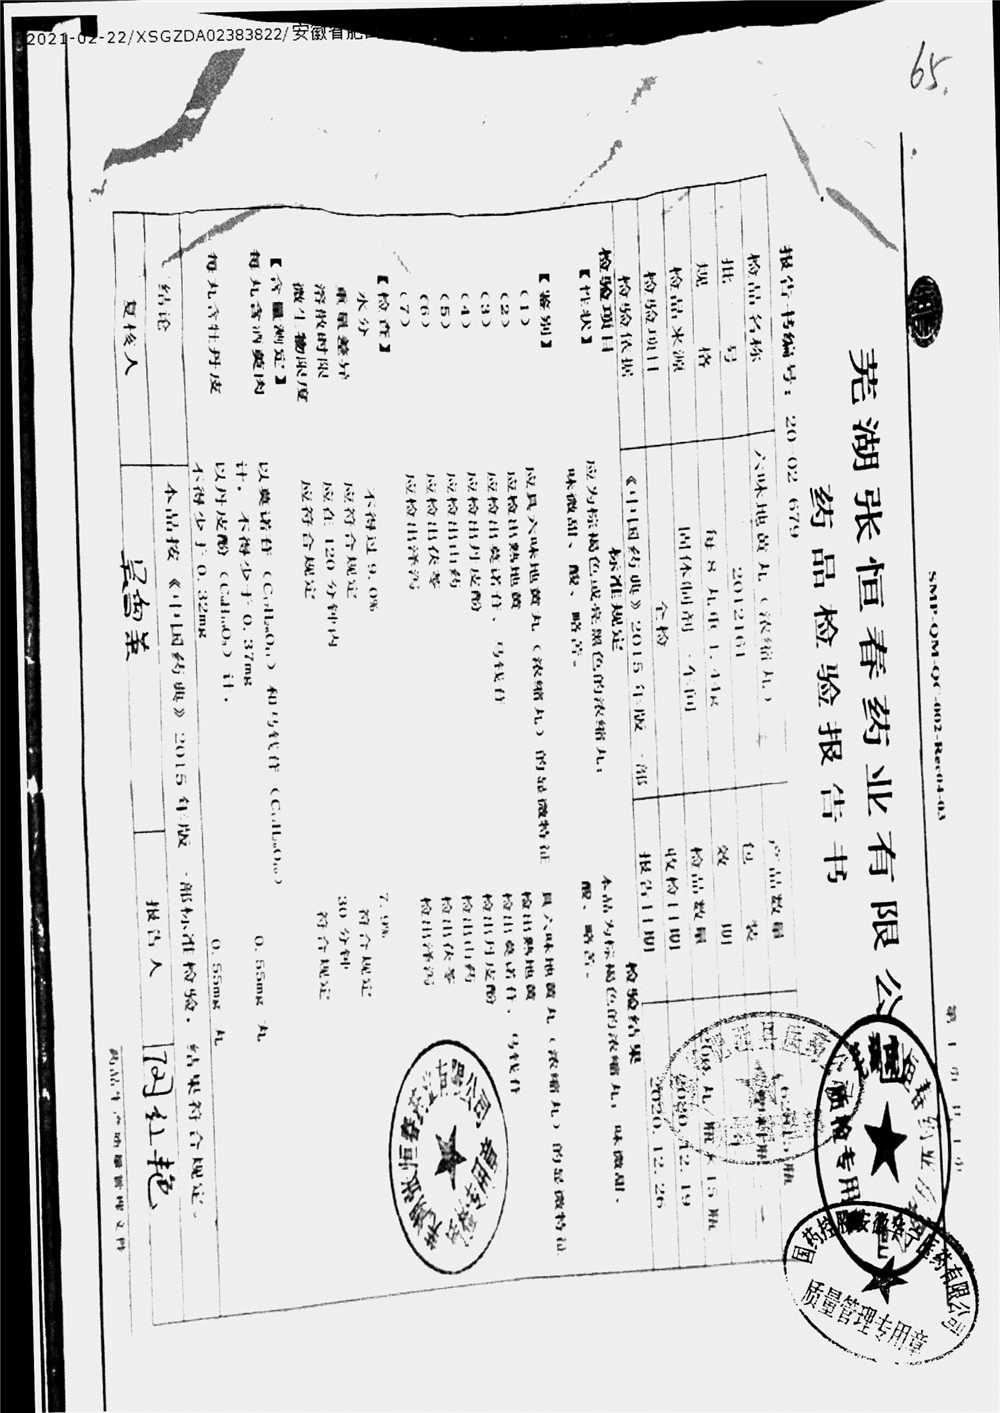 2021-02-22/XSGZDA02383822/安徽省肥西
65.
SMP-QM-QC-002-Rec04-03
第 1 页 共 1 页
芜湖张恒春药业有限公
药品检验报告书
报告书编号: 20-02-679
检品名称 六味地黄丸（浓缩丸） 产品数量
批 号 2012161 包 装
规 格 每8丸重1.44g 效 期
检品来源 固体制剂一车间 检品数量 200丸/瓶×15瓶
检验项目 全检 收检日期 2020.12.19
检验依据 《中国药典》2015年版一部 报告日期 2020.12.26
检验项目 标准规定 检验结果
【性状】 应为棕褐色或棕黑色的浓缩丸； 本品为棕褐色的浓缩丸；味微甜、
味微甜、酸、略苦。 酸、略苦。
【鉴别】
(1) 应具六味地黄丸（浓缩丸）的显微特征 具六味地黄丸（浓缩丸）的显微特征
(2) 应检出熟地黄 检出熟地黄
(3) 应检出莫诺苷、马钱苷 检出莫诺苷、马钱苷
(4) 应检出丹皮酚 检出丹皮酚
(5) 应检出山药 检出山药
(6) 应检出茯苓 检出茯苓
(7) 应检出泽泻 检出泽泻
【检查】
水分 不得过9.0% 7.9%
重量差异 应符合规定 符合规定
溶散时限 应在120分钟内 30分钟
微生物限度 应符合规定 符合规定
【含量测定】
每丸含酒萸肉 以莫诺苷（C₁₇H₂₆O₁₁）和马钱苷（C₁₇H₂₆O₁₀） 0.55mg/丸
计，不得少于0.37mg
每丸含牡丹皮 以丹皮酚（C₉H₁₀O₃）计， 0.55mg/丸
不得少于0.32mg
结论 本品按《中国药典》2015年版一部标准检验，结果符合规定。
复核人 报告人
药品生产质量管理文件
芜湖张恒春药业有限公司
肥西县医药公司
质检专用
国药控股安徽 医药有限公司
质量管理专用章